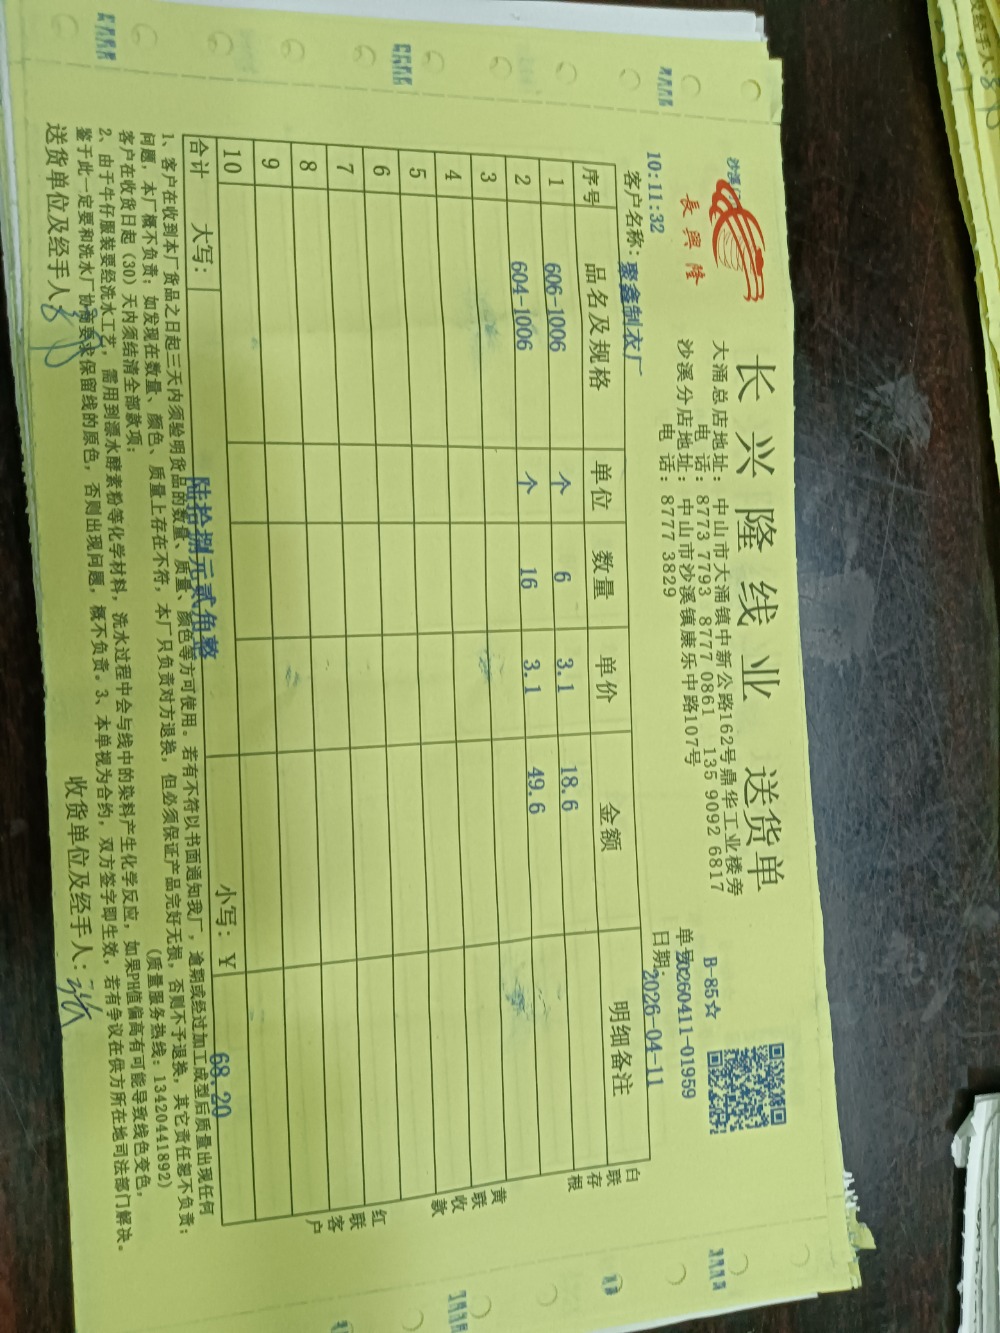 長興隆
长兴隆线业 送货单
大涌总店地址：中山市大涌镇中新公路162号鼎华工业楼旁
电话：8773 7793 8777 0861 135 9092 6817
沙溪分店地址：中山市沙溪镇康乐中路107号
电话：8777 3829
B-85☆
单号 260411-01959
日期：2026-04-11
10:11:32
客户名称：聚鑫制衣厂
序号 品名及规格 单位 数量 单价 金额 明细备注
1 606-1006 个 6 3.1 18.6
2 604-1006 个 16 3.1 49.6
3
4
5
6
7
8
9
10
合计 大写：陆拾捌元贰角整 小写：￥68.20
白联存根
黄联收款
红联客户
1、客户在收到本厂货品之日起三天内须验明货品的数量、质量、颜色等方可使用。若有不符以书面通知我厂，逾期或经过加工成型后质量出现任何
问题，本厂概不负责；如发现在数量、颜色、质量上存在不符，本厂只负责对方退换，但必须保证产品完好无损，否则不予退换，其它责任恕不负责；
客户在收货日起（30）天内须结清全部款项；
（质量服务热线：13420441892）
2、由于牛仔服装要经洗水工艺，需用到漂水酵素粉等化学材料，洗水过程中会与线中的染料产生化学反应，如果PH值偏高有可能导致线色变色，
鉴于此一定要和洗水厂协商要求保留线的原色，否则出现问题，概不负责。3、本单视为合约，双方签字即生效，若有争议在供方所在地司法部门解决。
送货单位及经手人：
收货单位及经手人：张